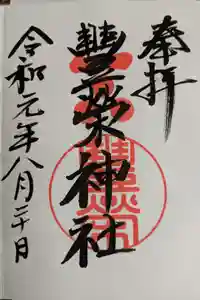 奉拝
豐榮神社
令和元年八月二十日